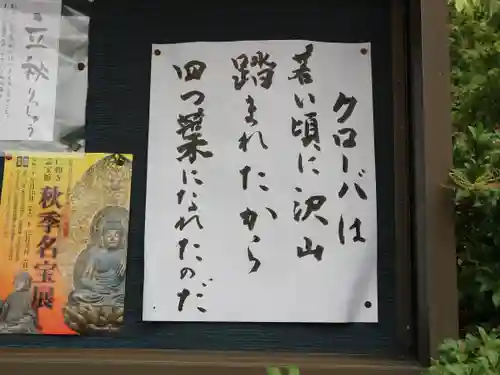 クローバは
若い頃に沢山
踏まれたから
四つ葉になれたのだ
立秋
りっしゅう
秋季名宝展